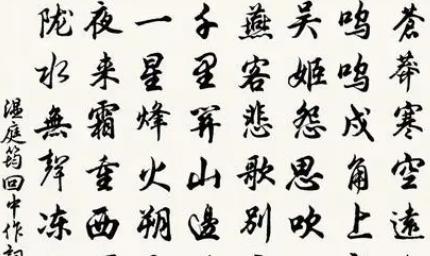 蒼莽寒空遠
嗚嗚戍角上
吴姬怨思吹
燕客悲歌别
千里關山邊
一星烽火朔
夜来霜重西
陇水無聲冻
温庭筠回中作